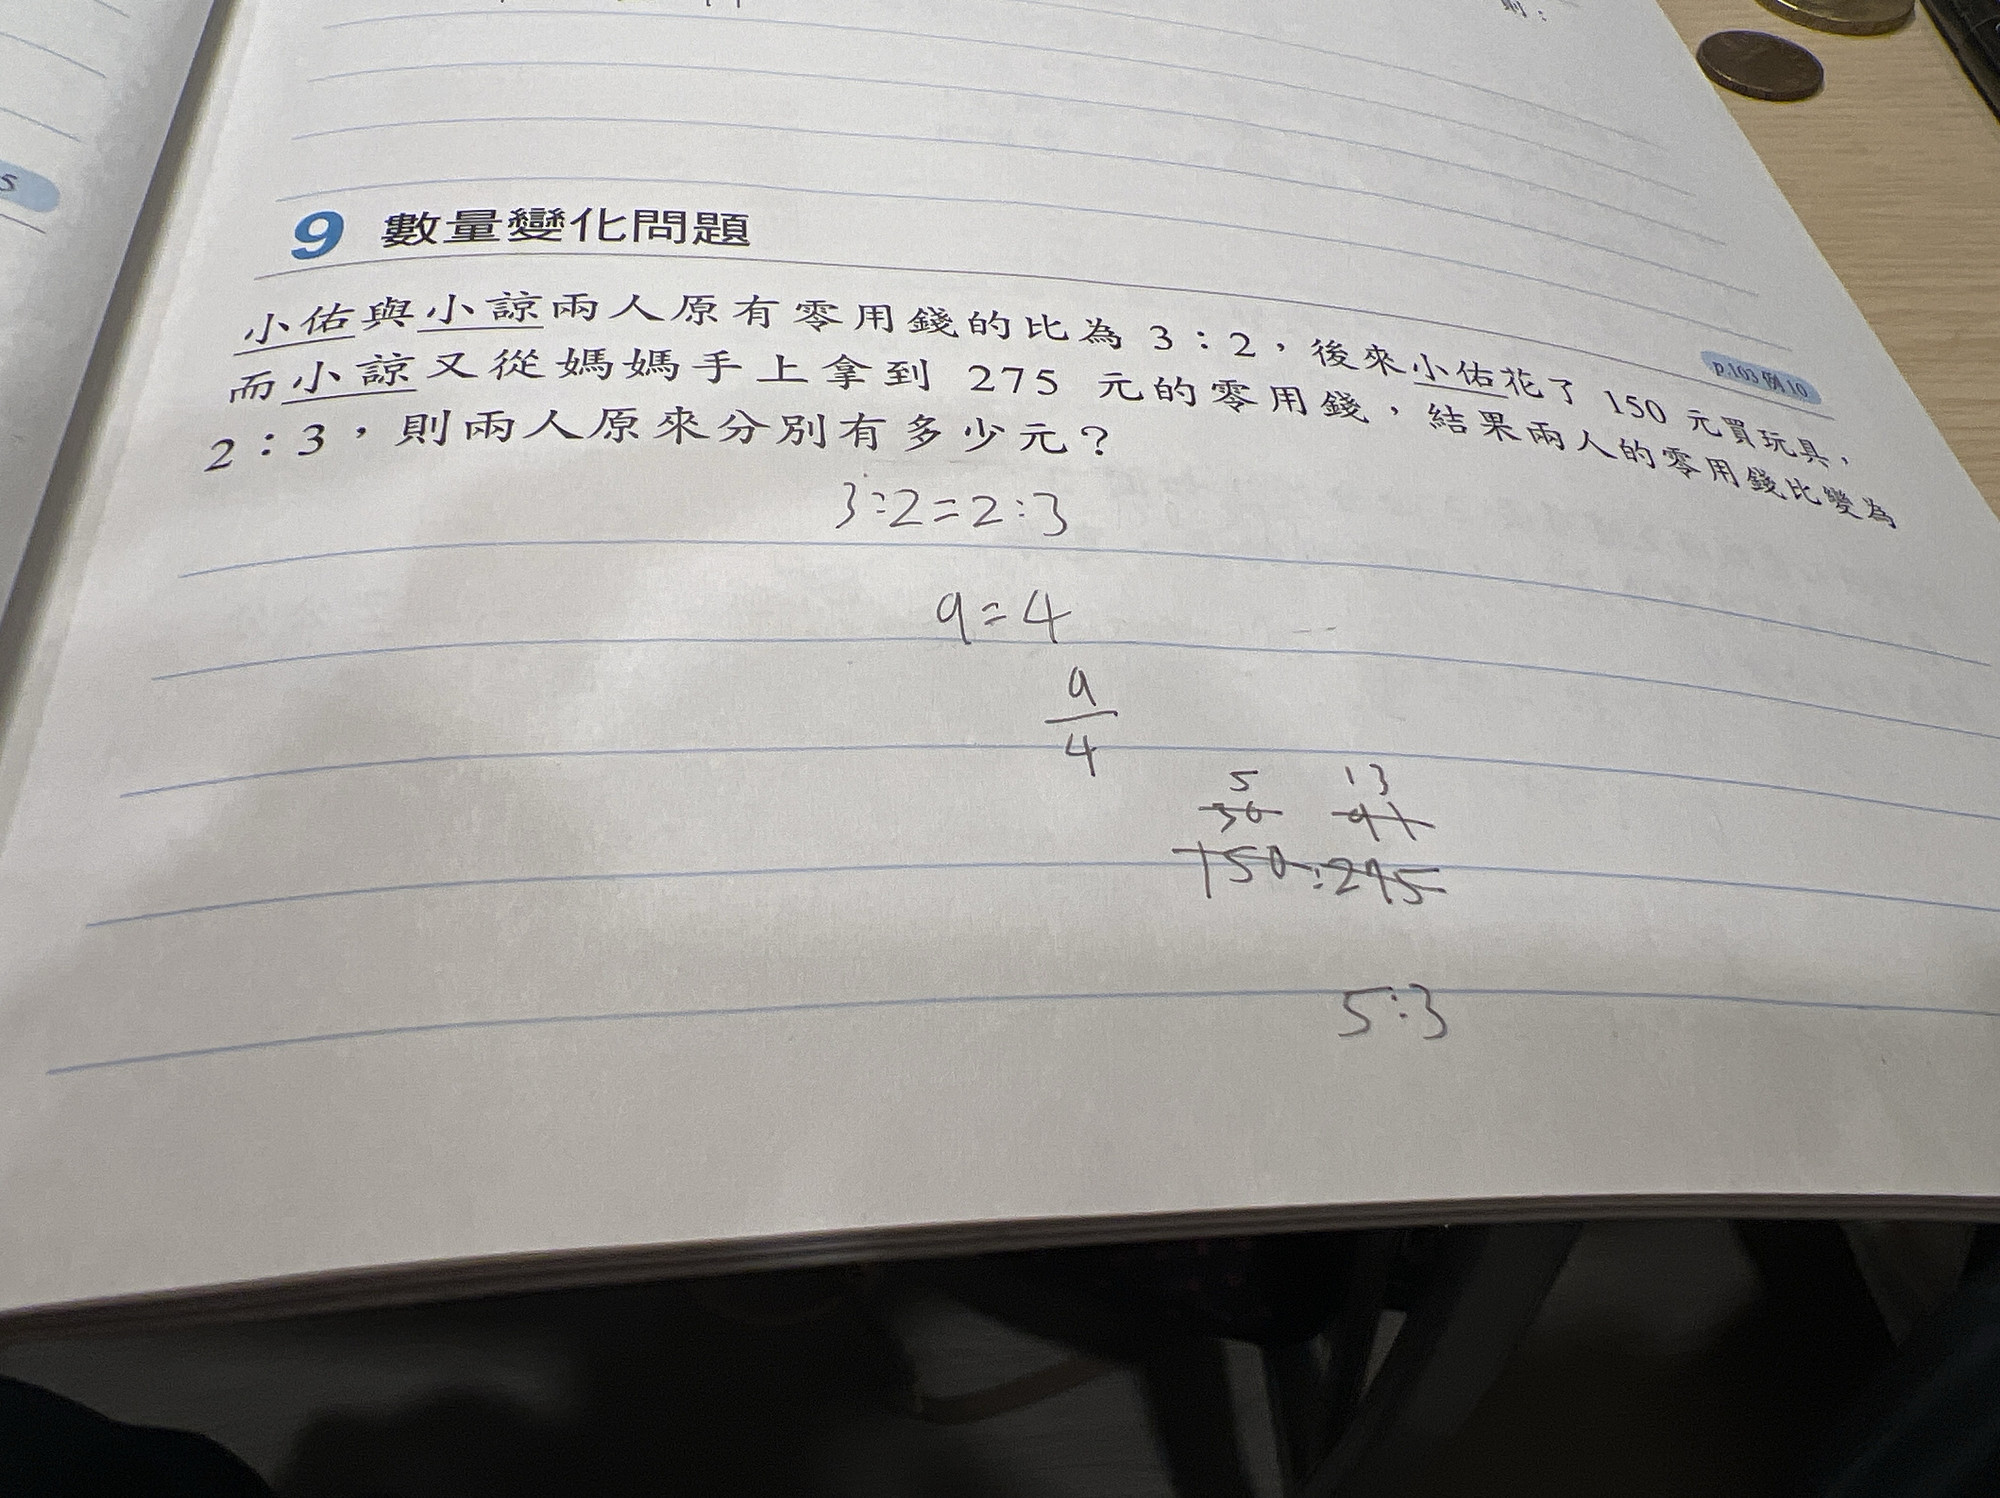 5
9 數量變化問題
p.103 例 10
小佑與小諒兩人原有零用錢的比為 3：2，後來小佑花了 150 元買玩具，
而小諒又從媽媽手上拿到 275 元的零用錢，結果兩人的零用錢比變為
2：3，則兩人原來分別有多少元？
3:2=2:3
9=4
9
4
5 13
30 91
150:275
5:3